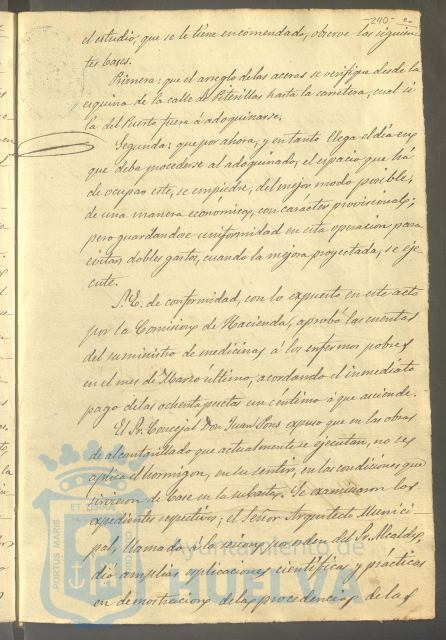 -240-
el estudio, que se le tiene encomendado, observe las siguien-
tes bases.
Primera: que el arreglo de las aceras se verifique desde la
esquina de la calle de Piterillas hasta la carretera, cual si
la del Puerto fuera a adoquinarse.
Segunda: que por ahora, y en tanto llega el dia en
que deba procederse al adoquinado, el espacio que há
de ocupar este, se empiedre, del mejor modo posible,
de una manera económica, con carácter provisional;
pero guardandose uniformidad en esta operación para
evitar dobles gastos, cuando la mejora proyectada, se eje-
cute.
S. E. de conformidad, con lo expuesto en este acto
por la Comision de Hacienda, aprobó las cuentas
del suministro de medicinas á los enfermos pobres
en el mes de Marzo ultimo, acordando el inmediato
pago de las ochenta pesetas un centimo á que asciende.
El Sr. Concejal Don Juan Pons expuso que en las obras
de alcantarillado que actualmente se ejecutan, no se
aplica el hormigon, en su sentir, en las condiciones que
sirvieron de base en la subasta. Se examinaron los
expedientes respectivos; el Señor Arquitecto Munici-
pal, llamado á la sesion por orden del Sr. Alcalde,
dió amplias esplicaciones cientificas y prácticas
en demostracion de la procedencia de la
PORTUS MARIS ET TERRAE CUSTODIA
Ayuntamiento de
HUELVA